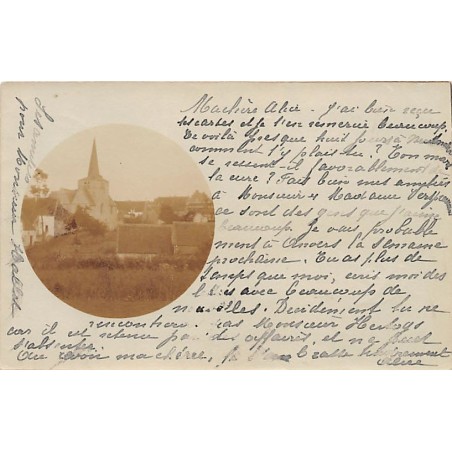 Ma chère Alice - J'ai bien reçu
tes cartes et je t'en remercie beaucoup.
Te voilà presque huit jours à
comment t'y plais tu? Ton mari
se ressent il favorablement de
la cure? Fait bien mes amitiés
à Monsieur et Madame
ce sont des gens que j'aime
beaucoup. Je vais probable
ment à Anvers la semaine
prochaine. Tu as plus de
temps que moi, écris moi des
avec beaucoup de
nouvelles. Décidément tu ne
rencontreras pas Monsieur
car il est retenu par des affaires, et ne peut
s'absenter.
Au revoir ma chère, je t'embrasse
pour Monsieur